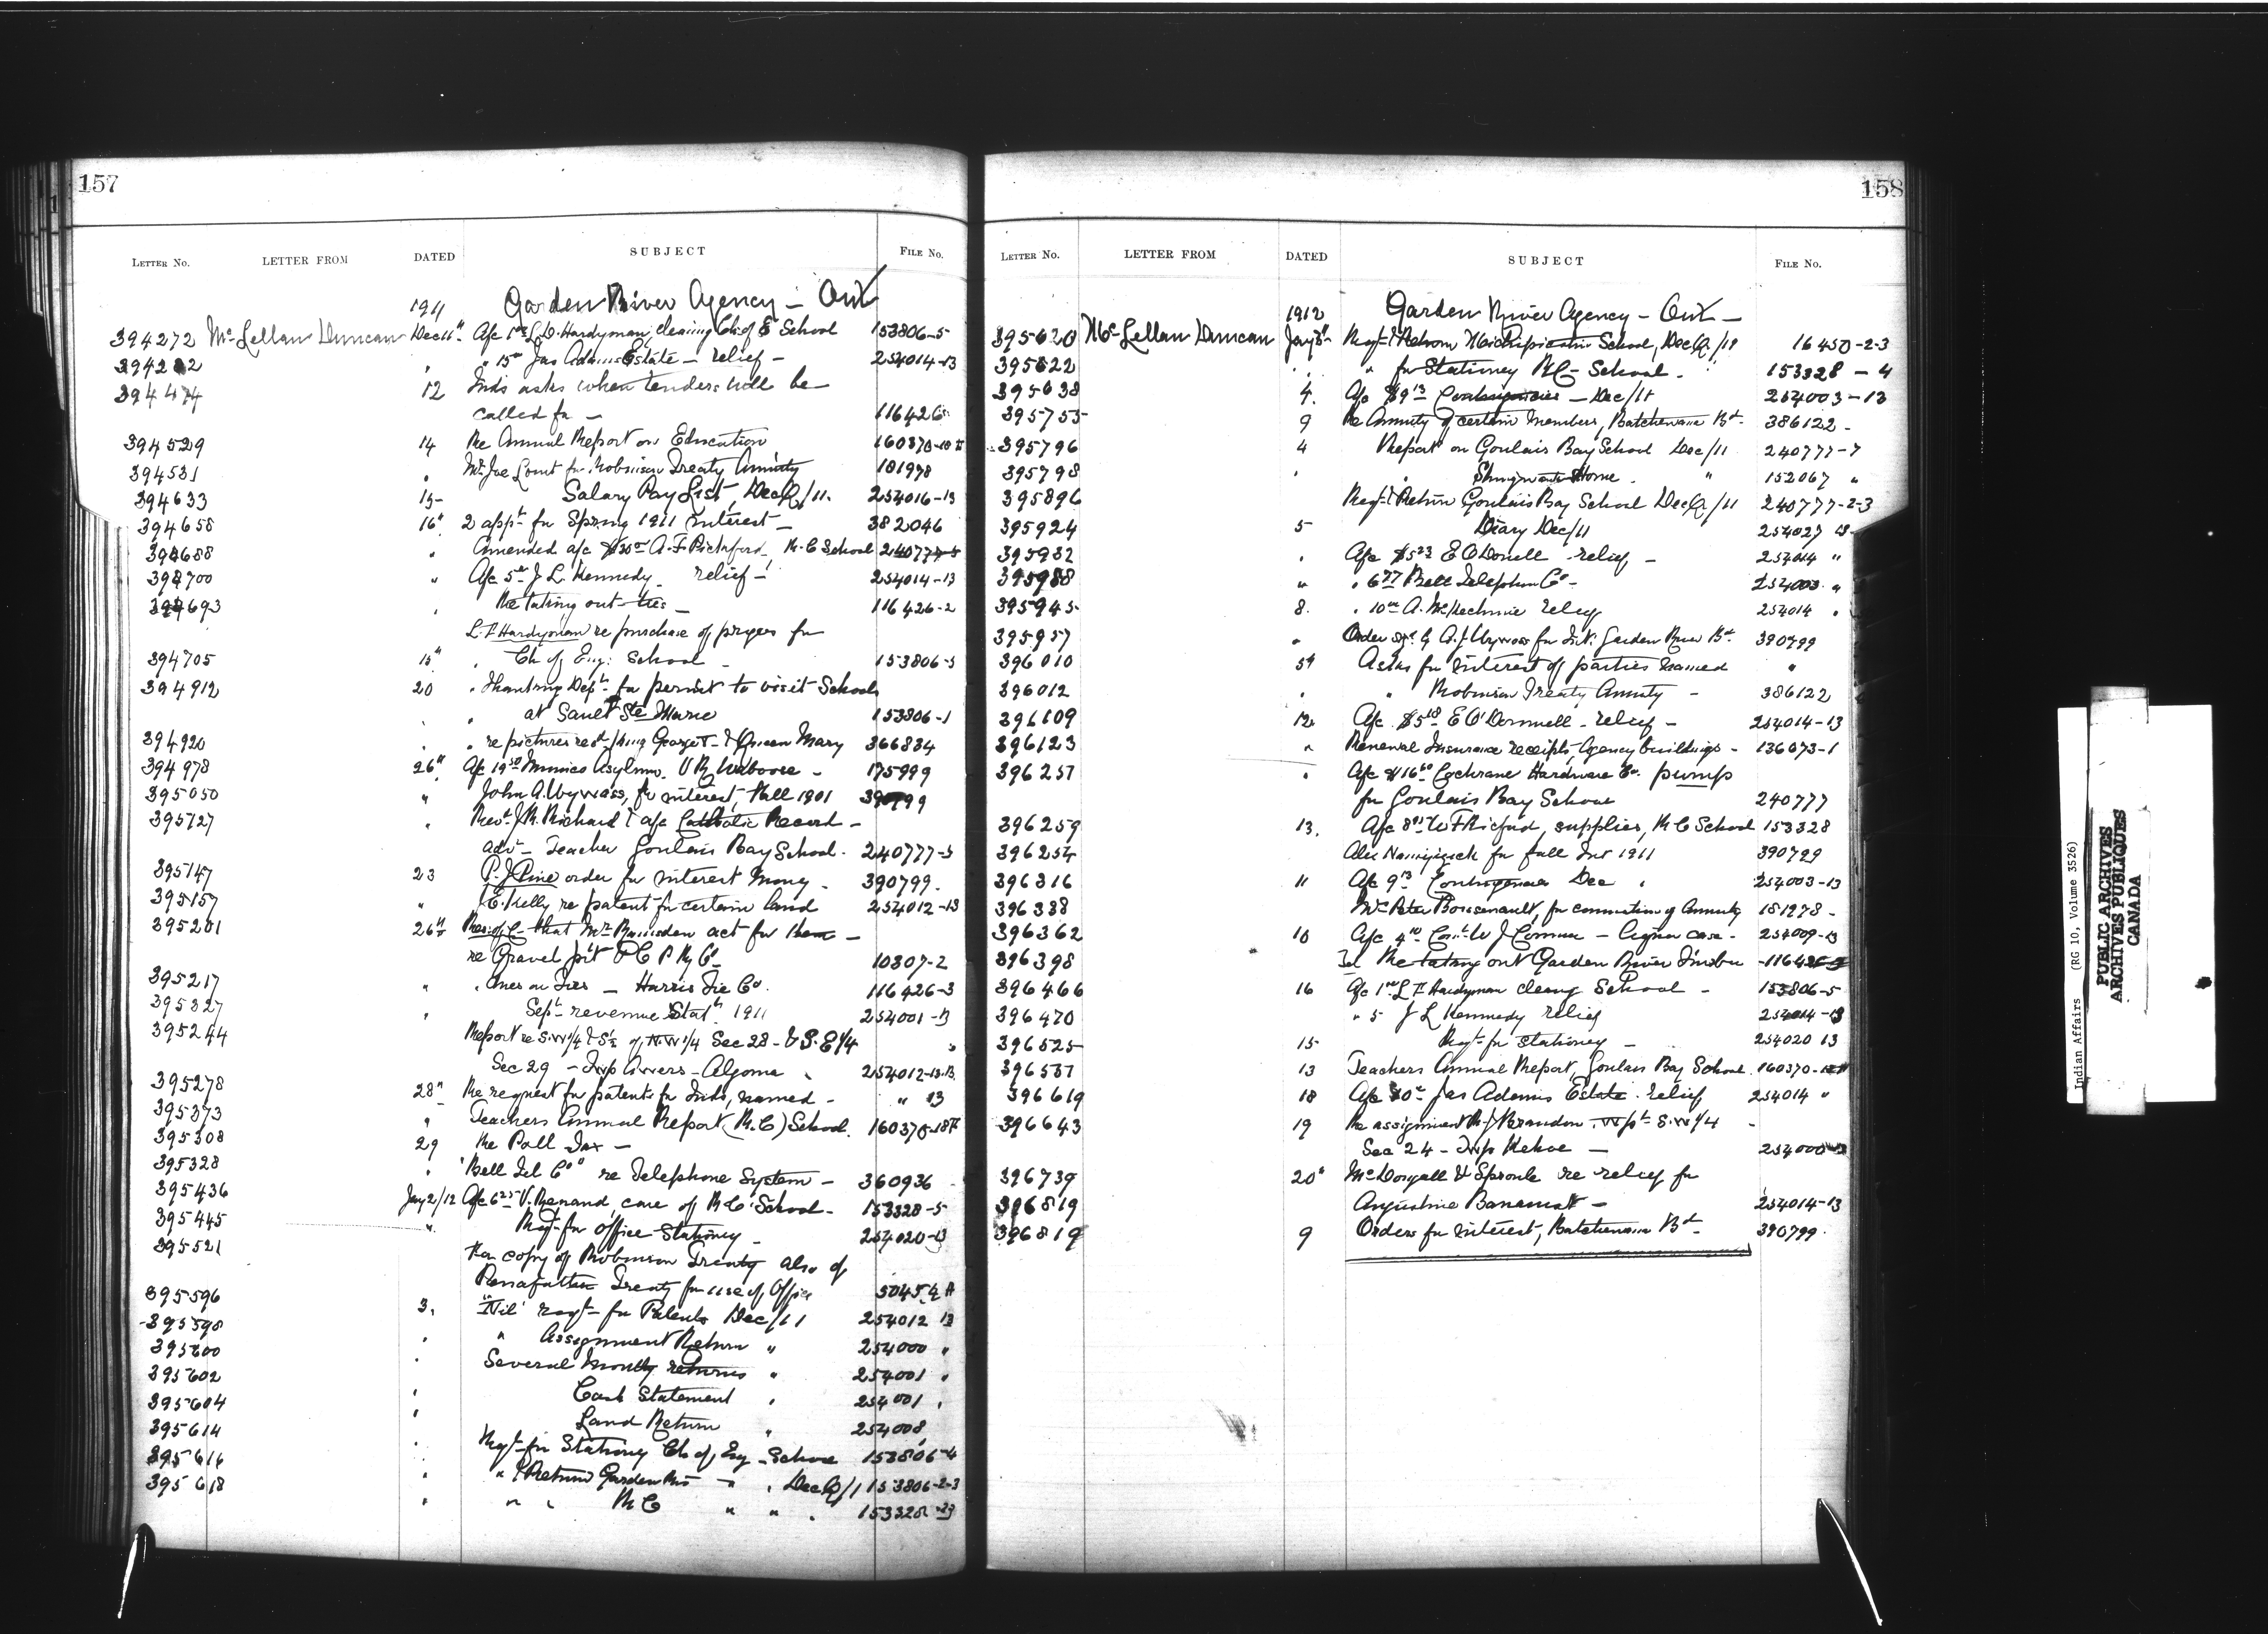 157
LETTER NO. LETTER FROM DATED SUBJECT FILE No.
1911 Garden River Agency - Ont
394272 McLellan Duncan Dec 11" A/c 1 L.D. Hardyman, cleaning Ch of E School 153806-5
" 15 Jas Adams Estate - relief - 254014-13
12 Inds asks when tenders will be
called for - 116426
394529 14 Re Annual Report on Education 160370
394531 " Mr Joe for Robinson Treaty Annuity 181978
394633 15 Salary Pay List, Dec Q/11. 254016-13
394658 16" 2 appts for Spring 1911 interest - 382046
" Amended a/c A.F. R.C School
" A/c 5 J L Kennedy relief - 254014-13
" Re taking out ties - 116426-2
L.F Hardyman re purchase of for
394705 15" " Ch of Eng: School - 153806-5
394912 20 " Thanking Dept for permit to visit Schools
" " at Sault Ste Marie 153806-1
394920 " " re pictures King George V & Queen Mary 366834
394978 26" A/c 19 Mimico Asylum. 175999
395050 " John A. Wywass, for interest, Fall 1901
395127 " Revd J.R. Richard & a/c Catholic Record -
advt - Teacher Goulais Bay School. 240777-5
395147 23 P.J. Pine order for interest money - 390799.
395157 " E. Kelly re patent for certain land 254012-13
395201 26" that Mr act for them -
re Gravel pit C P Ry Co 10307-2
395217 " " Dues on Ties - Harris Tie Co. 116426-3
395327 " Sept revenue Statt 1911 254001-13
395244 Report re S.W 1/4 & S½ of N.W 1/4 Sec 28 - & S.E 1/4 "
Sec 29 - Twp - Algoma " 254012-13
395278 28" Re request for patents for Inds, named - " 13
395373 " Teachers Annual Report (R.C) School.
395308 29 Re Poll Tax -
395328 " "Bell Tel Co" re Telephone System - 360936
395436 Jany 2/12 A/c 6 V. Renand, care of R.C School - 153328-5
395445 " Reqt for Office Stationery - 254020-13
395521 For copy of Robinson Treaty also of
Treaty for use of Office
395596 3. "Nil" reqt for Patents Dec/11 254012 13
395598 " " Assignment Return " 254000 "
395600 " Several Monthly returns " 254001 "
395602 " Cash Statement " 254001 "
395604 " Land Return " 254008
395614 " Reqt for Stationery Ch of Eng - School 153806-4
395616 " " & Return Garden Riv " " Dec Q/11 153806-2-3
395618 " " " R C " " " 153328
158
LETTER No. LETTER FROM DATED SUBJECT FILE No.
1912 Garden River Agency - Ont -
395620 McLellan Duncan Jany 3" Reqt & Return Michipicoten School, Dec Q/11 16450-2-3
395622 " " " for Stationery R.C - School - 153328-4
395638 4. A/c $9 13 Contingencies - Dec/11 254003-13
395755 9 Re Annuity of certain Members, Batchewana Bd - 386122 -
395796 4 Report on Goulais Bay School Dec/11 240777-7
395798 " " Shingwauk Home " " 152067 "
395896 Reqt & Return Goulais Bay School Dec Q/11 240777-2-3
395924 5 Diary Dec/11 254027 13
395932 " A/c $5 23 E O'Donell relief - 254014 "
395988 " " 6 77 Bell Telephone Co - 254003 "
395945 8. " 10 A. McKechnie relief 254014 "
395957 " Order A.J. Wywass for Int: Garden River Bd 390799
396010 5" Asks for interest of parties named "
396012 " " Robinson Treaty Annuity - 386122
396109 12 A/c $5 18 E O'Donnell - relief - 254014-13
396123 " Renewal Insurance receipts, Agency buildings - 136073-1
396257 " A/c $16 Cochrane Hardware Co. pump
for Goulais Bay School 240777
396259 13. A/c 8 W F Ricford, supplies, R C School 153328
396254 for fall Int 1911 390799
396316 11 A/c 9 13 Contingencies Dec " 254003-13
396338 Mrs Peter for commutation of Annuity 181978 -
396362 10 A/c 4 Const W J - Liquor case - 254009-13
396398 Tel Re taking out Garden River Timber
396466 16 A/c 1 L F Hardyman cleang School - 153806-5
396470 " 5 J L Kennedy relief 254014-13
396525 15 Reqt for stationery - 254020 13
396537 13 Teachers Annual Report, Goulais Bay School.
396619 18 A/c Jas Adams Estate. relief 254014 "
396643 19 Re assignment R J Brandon S.W 1/4 -
Sec 24 - Twp Kehoe -
396739 20" McDougall & Sproule re relief for
396819 Augustine - 254014-13
396819 9 Orders for interest, Batchewana Bd - 390799.
Indian Affairs (RG 10, Volume 3526)
PUBLIC ARCHIVES
ARCHIVES PUBLIQUES
CANADA